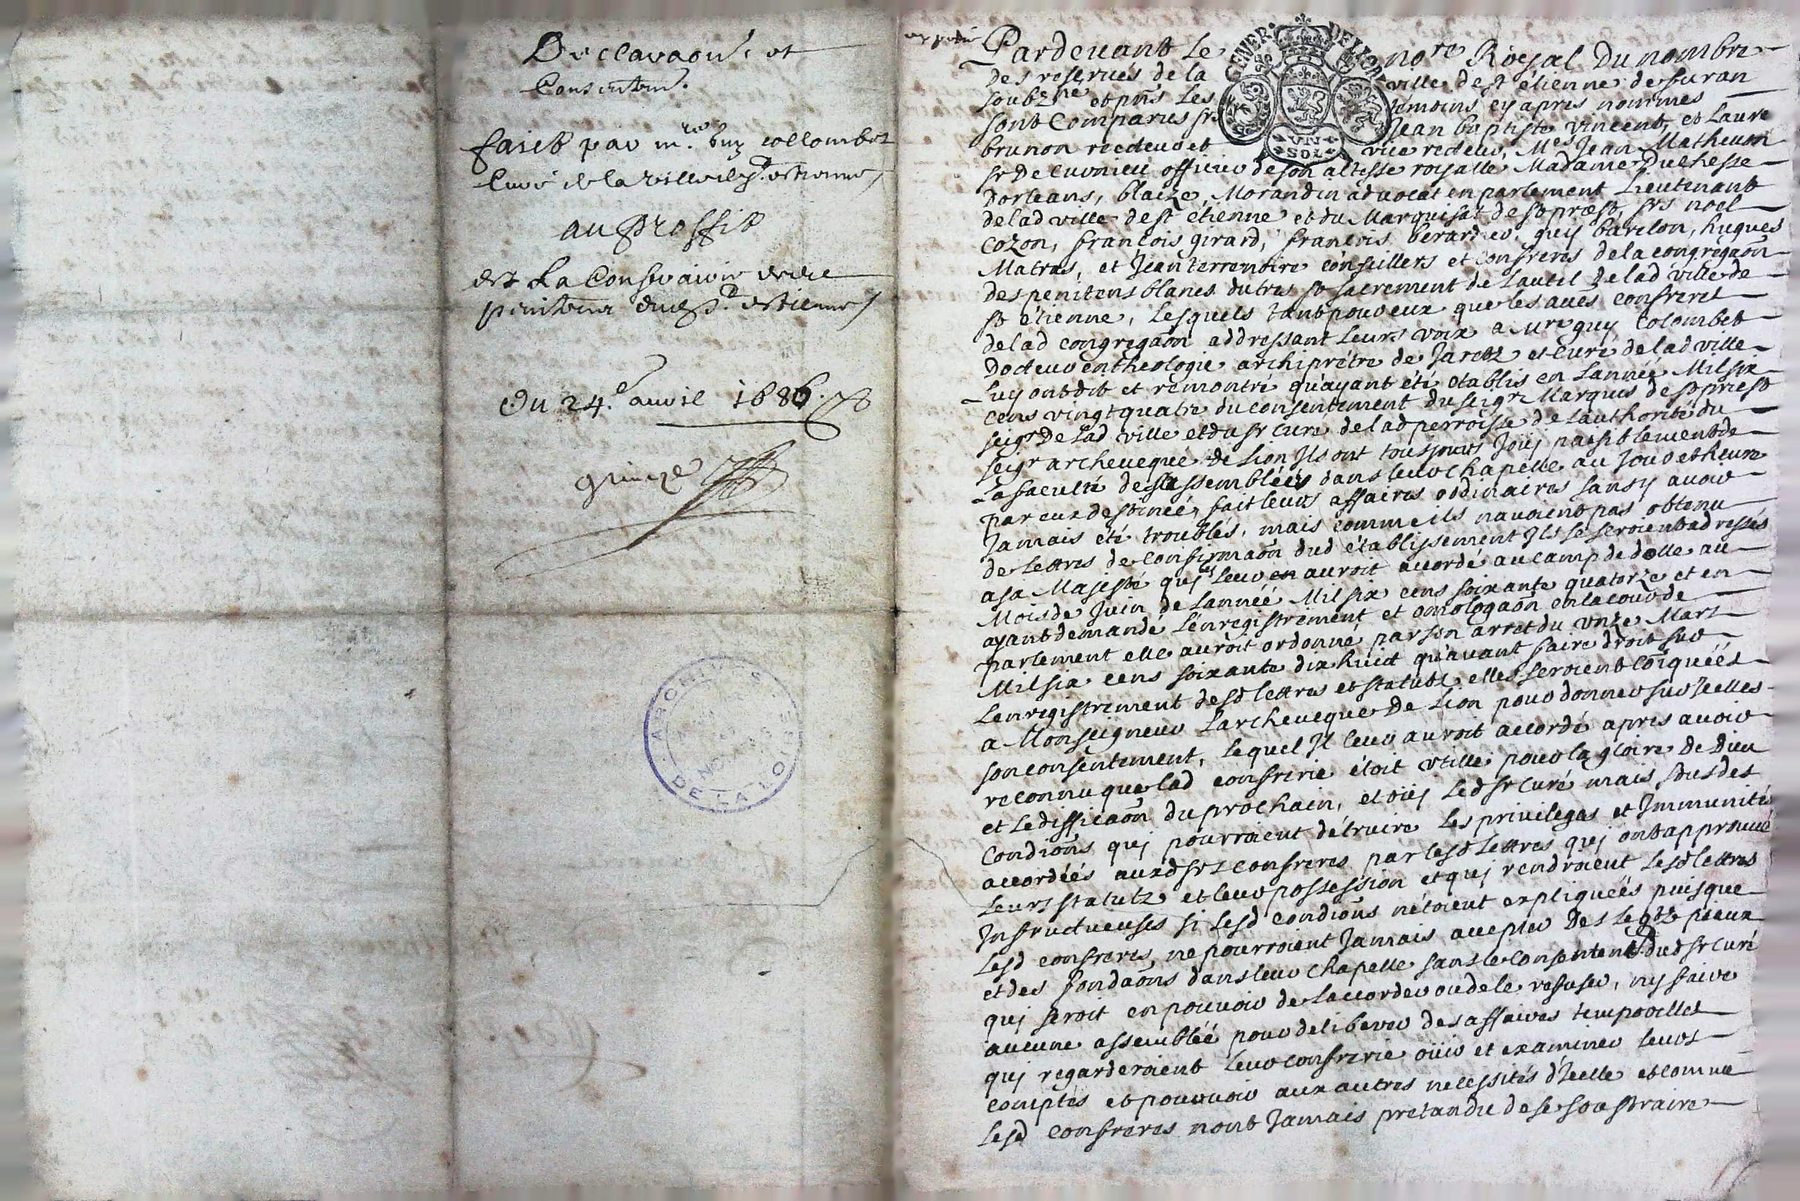 Declaraon et
Consentem.t
faict par m.re Guy collombet
Curé de la ville de s.t estienne
au proffit
de La Confrairie des
penitens dud s.t estienne
Du 24.e auril 1686
ARCHIVES
DE LA LOIRE
GENER DE LION
VN SOL
Pardeuant Le no.re Royal du nombre
des reserués de la ville de s.t étienne de furan
soubz.né et pñs Les temoins cy apres nommés
sont Comparus srs Jean baptiste vincent, et Laure
brunon recteur et vice recteur, M.es Jean Matheuon
sr De Curnieu officier de son altesse royalle Madame Duchesse
Dorleans, blaize Morandin aduocat en parlement Lieutenant
de lad ville de st étienne et du Marquisat de st priest, srs noel
Cozon, françois girard, françois berardier, guy barelon, hugues
Matras, et Jean terrenoire conseillers et confreres de la congregaõn
des penitens blancs du tres st sacrement de Lautel de lad ville de
st étienne, Lesquels tant pour eux que les aues confreres
de lad congregaõn addressant Leurs voix a M.re guy Colombet
Docteur en theologie archiprétre de Jaretz et Curé de lad ville
Luy ont dit et remontré quayant été etablis en Lannée Mil six
cens vingt quatre du consentement du seigr Marquis de st priest
seigr de Lad ville et du sr Curé de lad perroisse de Lauthorité du
seigr archeueque de Lion Ils ont tousjours Jouy paisiblement de
La faculté de sassembler dans leur Chapelle au Jour et heure
par eux destinée, fait leurs affaires ordinaires sans y auoir
Jamais été troublés, mais comme ils nauoient pas obtenu
de Lettres de Confirmaõn dud établissement Ils se seroient adressés
a sa Majesté qui Leur en auroit accordé au camp de dolle au
Mois de Juin de Lannée Mil six cens soixante quatorze et en
ayant demandé Lenregistrement et omologaõn en la cour de
parlement elle auroit ordonné par son arret du vnze Mars
Mil six cens soixante dix huict quauant faire droit sur
Lenregistrement desd lettres et statutz elles seroient Coiquéés
a Monseigneur Larcheueque de Lion pour donner sur Icelles
son consentement, Lequel Il leur auroit accordé apres auoir
reconnu que lad confrerie étoit vtille pour la gloire de Dieu
et Ledifficaõn du prochain, et ouy Led sr Curé mais sous des
Condiõns qui pourroient détruire Les priuileges et Immunités
accordéés auxd srs confreres par lesd Lettres qui ont approuué
Leurs statutz et leur possession et qui rendroient Lesd lettres
Infructueuses si Lesd condiõns nétoient expliquéés puisque
Lesd confreres ne pourroient Jamais accepter des Legtz pieux
et des fondaõns dans leur Chapelle sans le Consentent dud sr Curé
qui seroit en pouuoir de Laccorder ou de le refuser, ny faire
aucune assemblée pour deliberer des affaires temporelles
qui regarderoient Leur confrerie ouir et examiner leurs
comptes et pouruoir aux autres necessités dIcelle et comme
Lesd confreres nont Jamais pretandu de se soustraire